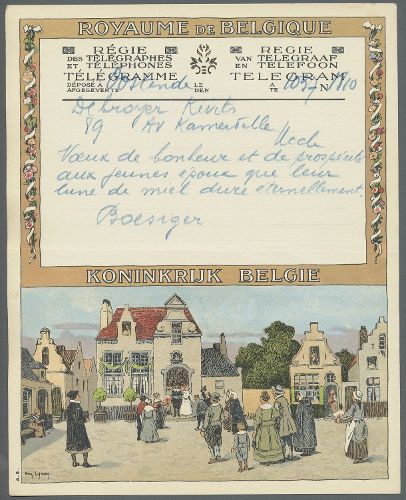 ROYAUME DE BELGIQUE
RÉGIE
DES TÉLÉGRAPHES
ET TÉLÉPHONES
TÉLÉGRAMME
DÉPOSÉ A
AFGEGEVEN TE
Oostende
LE
DEN
REGIE
VAN TELEGRAAF
EN TELEFOON
TELEGRAM
A
TE
N
1037
1810
89 Av Kamerdelle
Uccle
Vœux de bonheur et de prospérité
aux jeunes époux que leur
lune de miel dure éternellement.
Boesiger
KONINKRIJK BELGIE